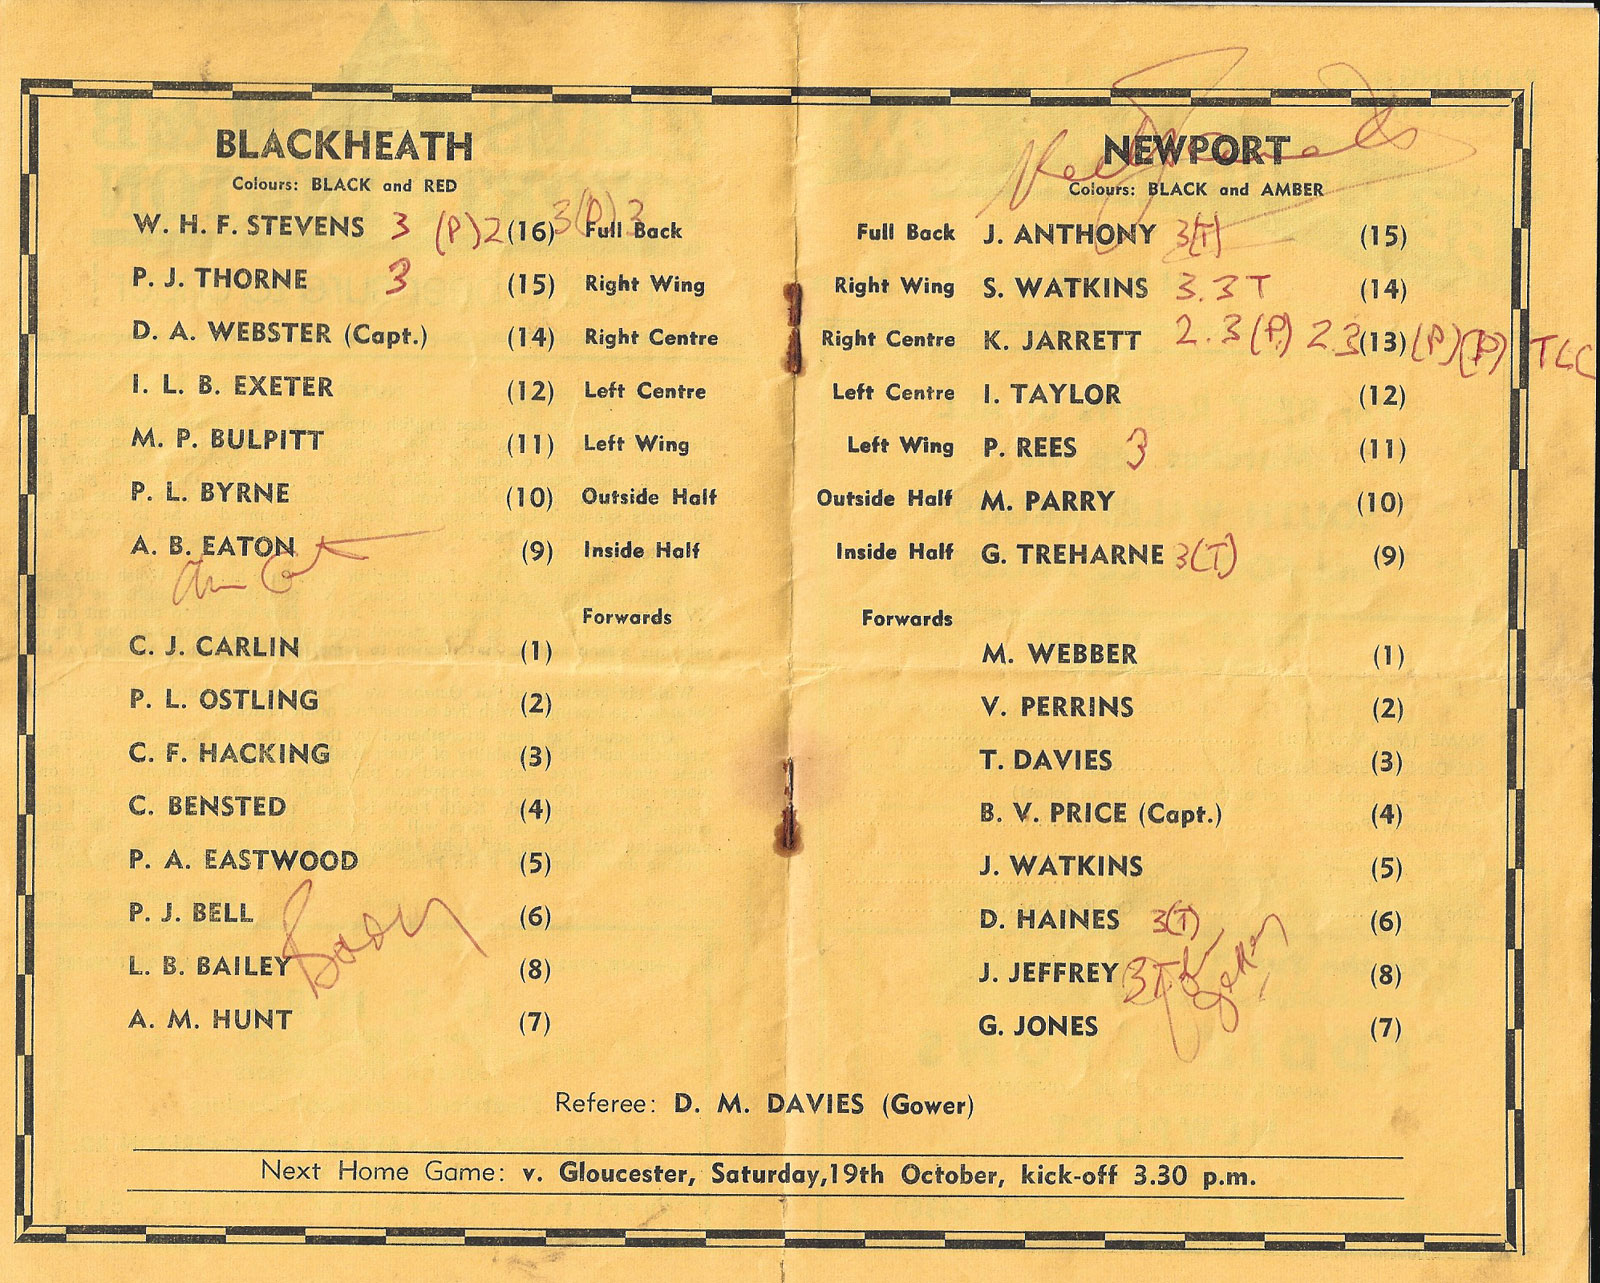 BLACKHEATH
Colours: BLACK and RED
W. H. F. STEVENS 3 (P) 2 (16) 3(P) 3 Full Back
P. J. THORNE 3 (15) Right Wing
D. A. WEBSTER (Capt.) (14) Right Centre
I. L. B. EXETER (12) Left Centre
M. P. BULPITT (11) Left Wing
P. L. BYRNE (10) Outside Half
A. B. EATON (9) Inside Half
Forwards
C. J. CARLIN (1)
P. L. OSTLING (2)
C. F. HACKING (3)
C. BENSTED (4)
P. A. EASTWOOD (5)
P. J. BELL (6)
L. B. BAILEY (8)
A. M. HUNT (7)
NEWPORT
Colours: BLACK and AMBER
Full Back J. ANTHONY 3(T) (15)
Right Wing S. WATKINS 3. 3 T (14)
Right Centre K. JARRETT 2. 3 (P) 2 3 (13) (P) (P) TLC
Left Centre I. TAYLOR (12)
Left Wing P. REES 3 (11)
Outside Half M. PARRY (10)
Inside Half G. TREHARNE 3(T) (9)
Forwards
M. WEBBER (1)
V. PERRINS (2)
T. DAVIES (3)
B. V. PRICE (Capt.) (4)
J. WATKINS (5)
D. HAINES 3(T) (6)
J. JEFFREY 3T (8)
G. JONES (7)
Referee: D. M. DAVIES (Gower)
Next Home Game: v. Gloucester, Saturday,19th October, kick-off 3.30 p.m.